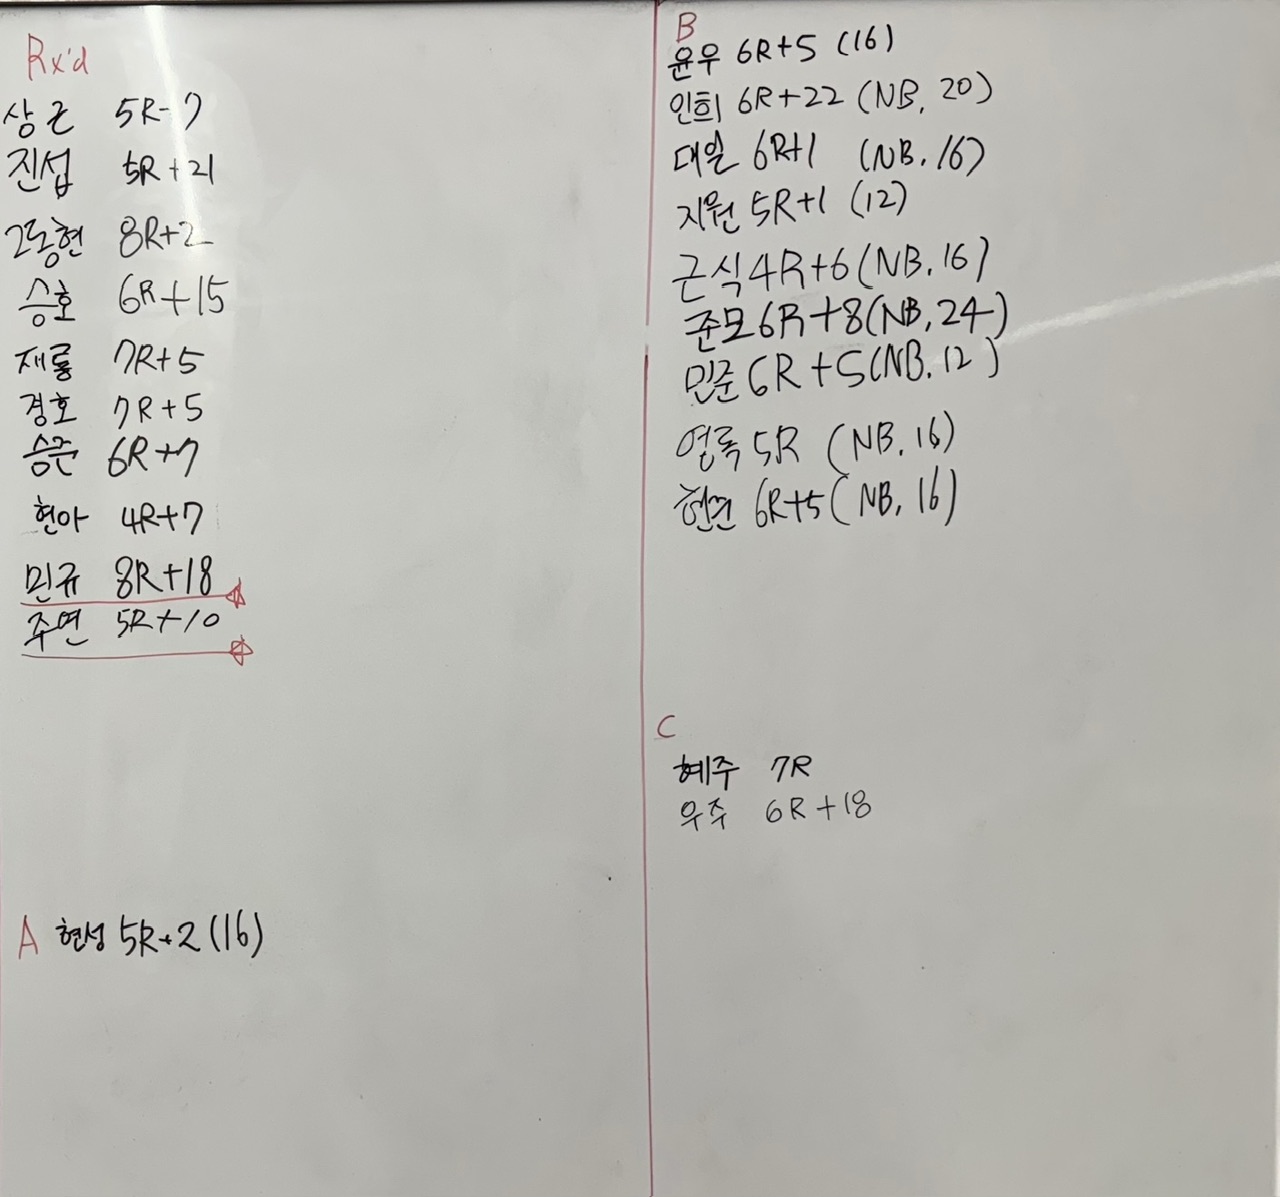 Rx'd
상근 5R-7
진섭 5R+21
2동현 8R+2
승호 6R+15
재룡 7R+5
경호 7R+5
승준 6R+7
현아 4R+7
민규 8R+18
주연 5R+10
A 현성 5R+2 (16)
B
윤우 6R+5 (16)
인희 6R+22 (NB, 20)
대일 6R+1 (NB, 16)
지원 5R+1 (12)
근식 4R+6 (NB, 16)
준모 6R+8 (NB, 24)
민준 6R+5 (NB, 12)
영록 5R (NB, 16)
6R+5 (NB, 16)
C
혜주 7R
우주 6R+18